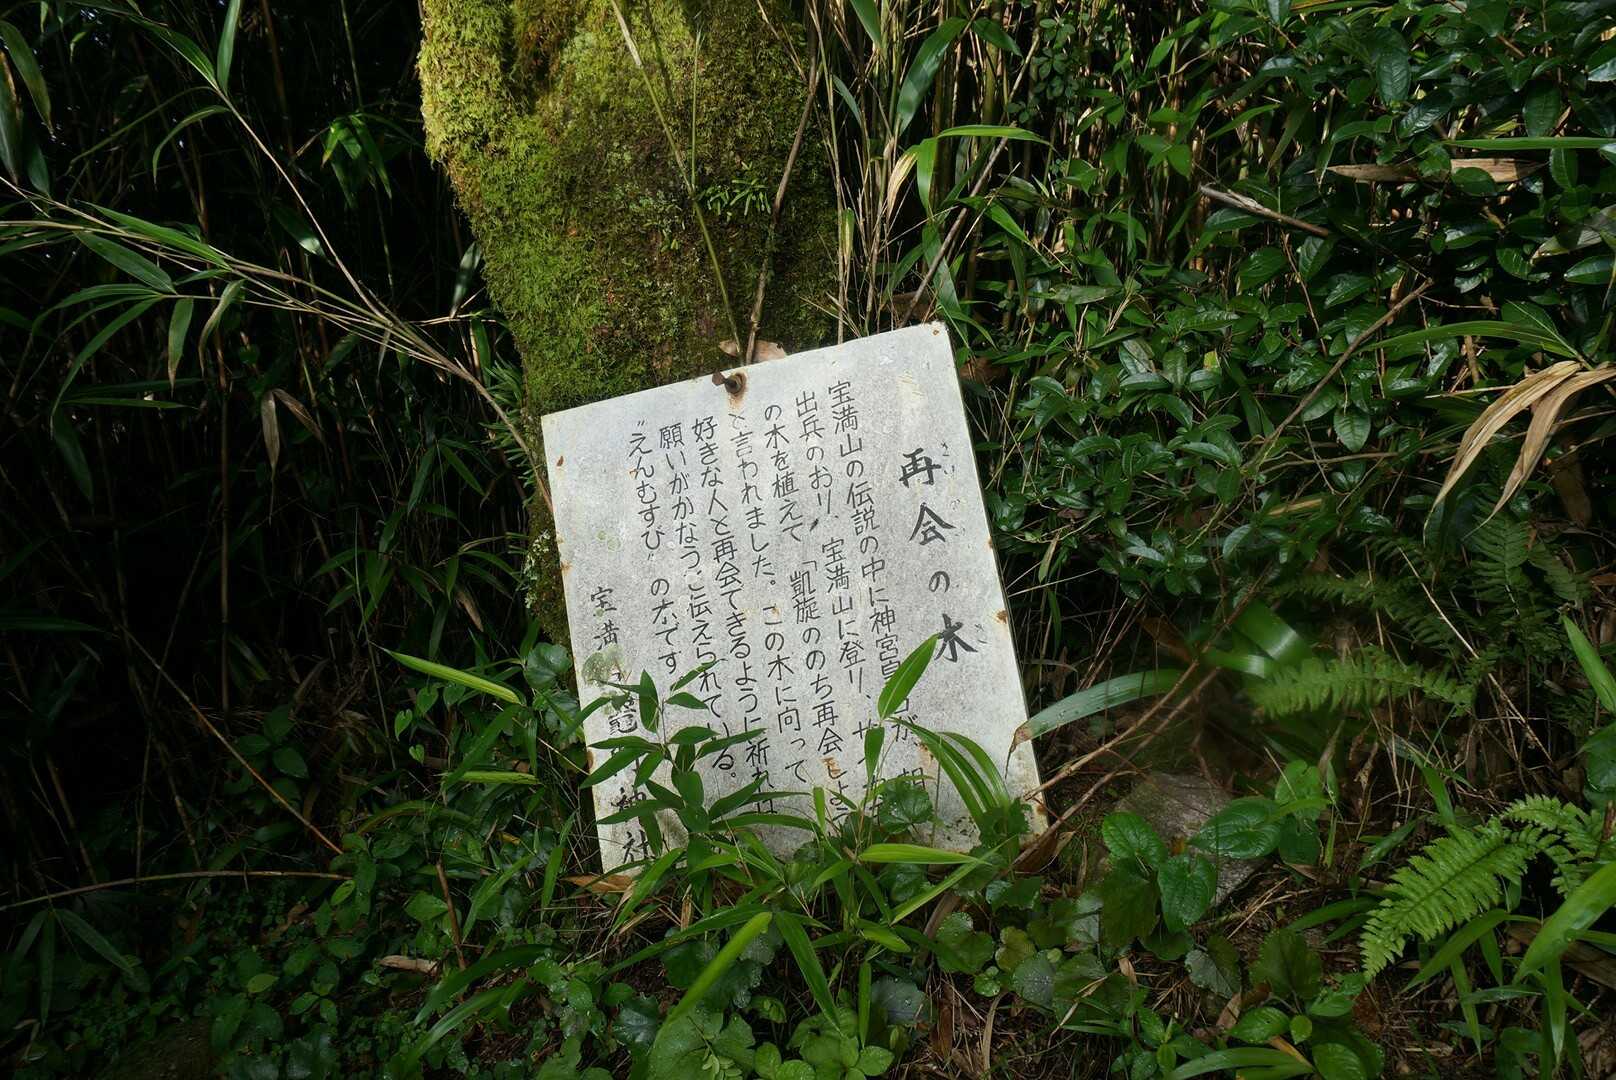 再会の木
さいかいのき
宝満山の伝説の中に神宮皇后が、
出兵のおり、宝満山に登り、サ
の木を植えて「凱旋ののち再会しよ
と言われました。この木に向って
好きな人と再会できるように祈れば
願いがかなうご伝えられている。
〝えんむすび〟の木です
宝満 竈 神社